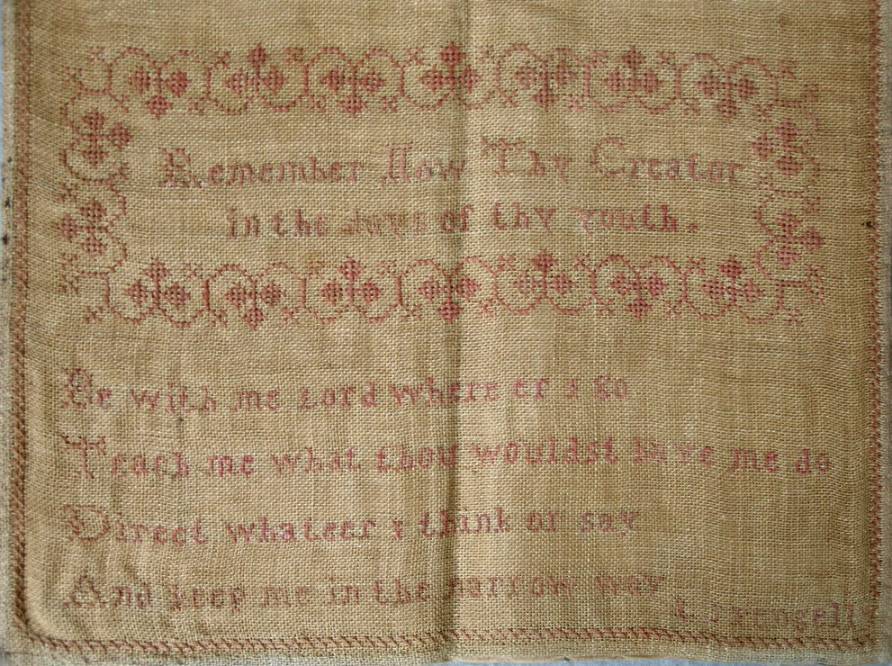 Remember Now Thy Creator
in the days of thy youth.
Be with me Lord where er I go
Teach me what thou wouldst have me do
Direct whateer I think or say
And keep me in the narrow way